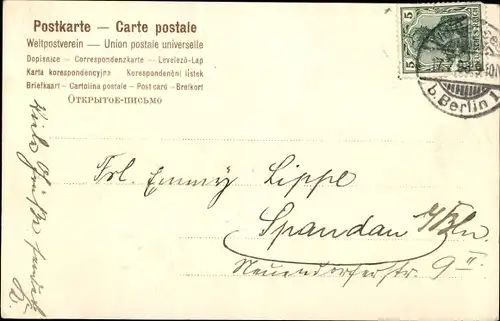 Postkarte — Carte postale
Weltpostverein — Union postale universelle
Dopisnice — Correspondenzkarte — Levelező-Lap
Karta korespondencyjna Korespondenční lístek
Briefkaart — Cartolina postale — Post card — Brefkort
ОТКРЫТОЕ-ПИСЬМО
5 5
b. Berlin 1
Frl. Emmy Lippe
Spandau b/Bln.
Neuendorferstr. 9 II.
Viele Grüße sendet